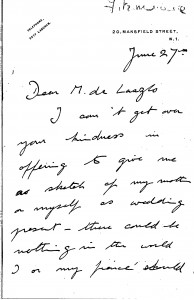 Fitzmaurice
TELEPHONE,
20, MANSFIELD STREET,
W.1.
June 27th
Dear M. de Laszlo
I can't get over
your kindness in
offering to give me
a sketch of my mother
or myself as wedding
present – there could be
nothing in the world
I or my fiancé should